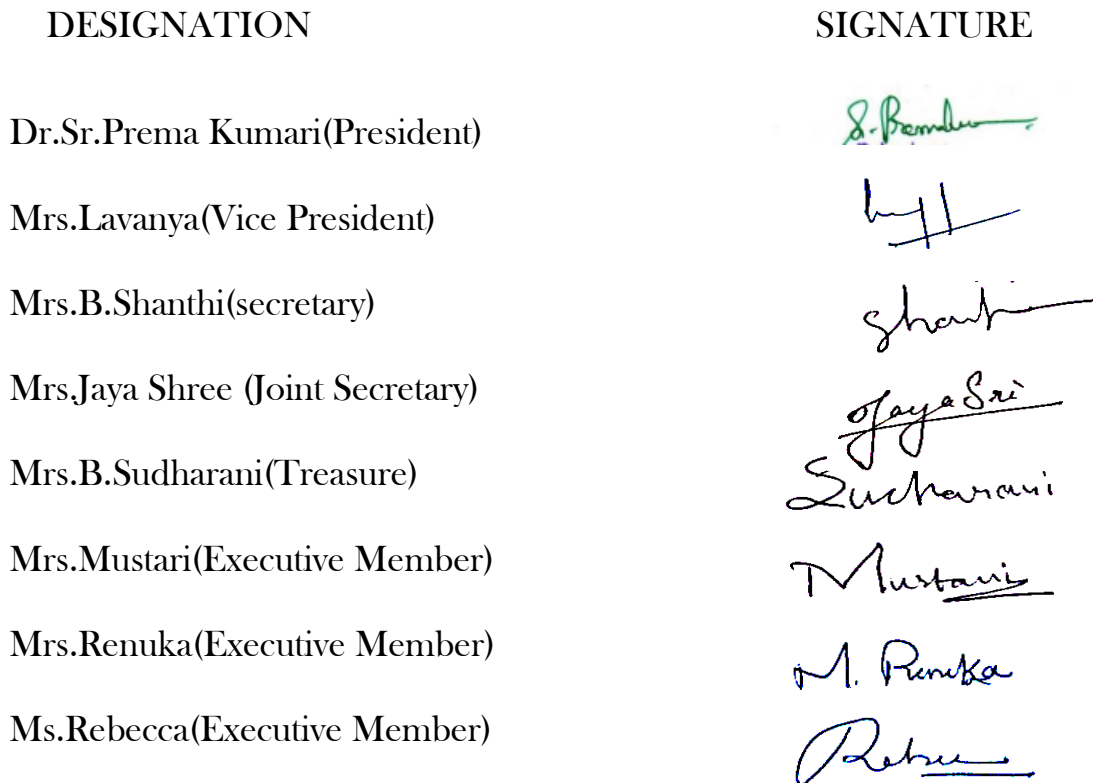 DESIGNATION SIGNATURE
Dr.Sr.Prema Kumari(President)
Mrs.Lavanya(Vice President)
Mrs.B.Shanthi(secretary) Shanti
Mrs.Jaya Shree (Joint Secretary) JayaSri
Mrs.B.Sudharani(Treasure) Sudharani
Mrs.Mustari(Executive Member) Mustari
Mrs.Renuka(Executive Member) M. Renuka
Ms.Rebecca(Executive Member)